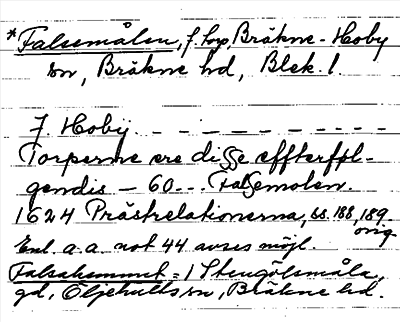 *Falsemålen, f. torp, Bräkne-Hoby
sn, Bräkne hd, Blek. l.
J. Hobÿ - - - - - - - - -
Torperne ere disse effterføl-
gendis - 60 - - Falsemolen.
1624 Prästrelationerna, ss. 188, 189.
orig
Enl. a.a. not 44 avses möjl.
Falsahemmet = 1 Stengölsmåla,
gd, Öljehults sn, Bräkne hd.